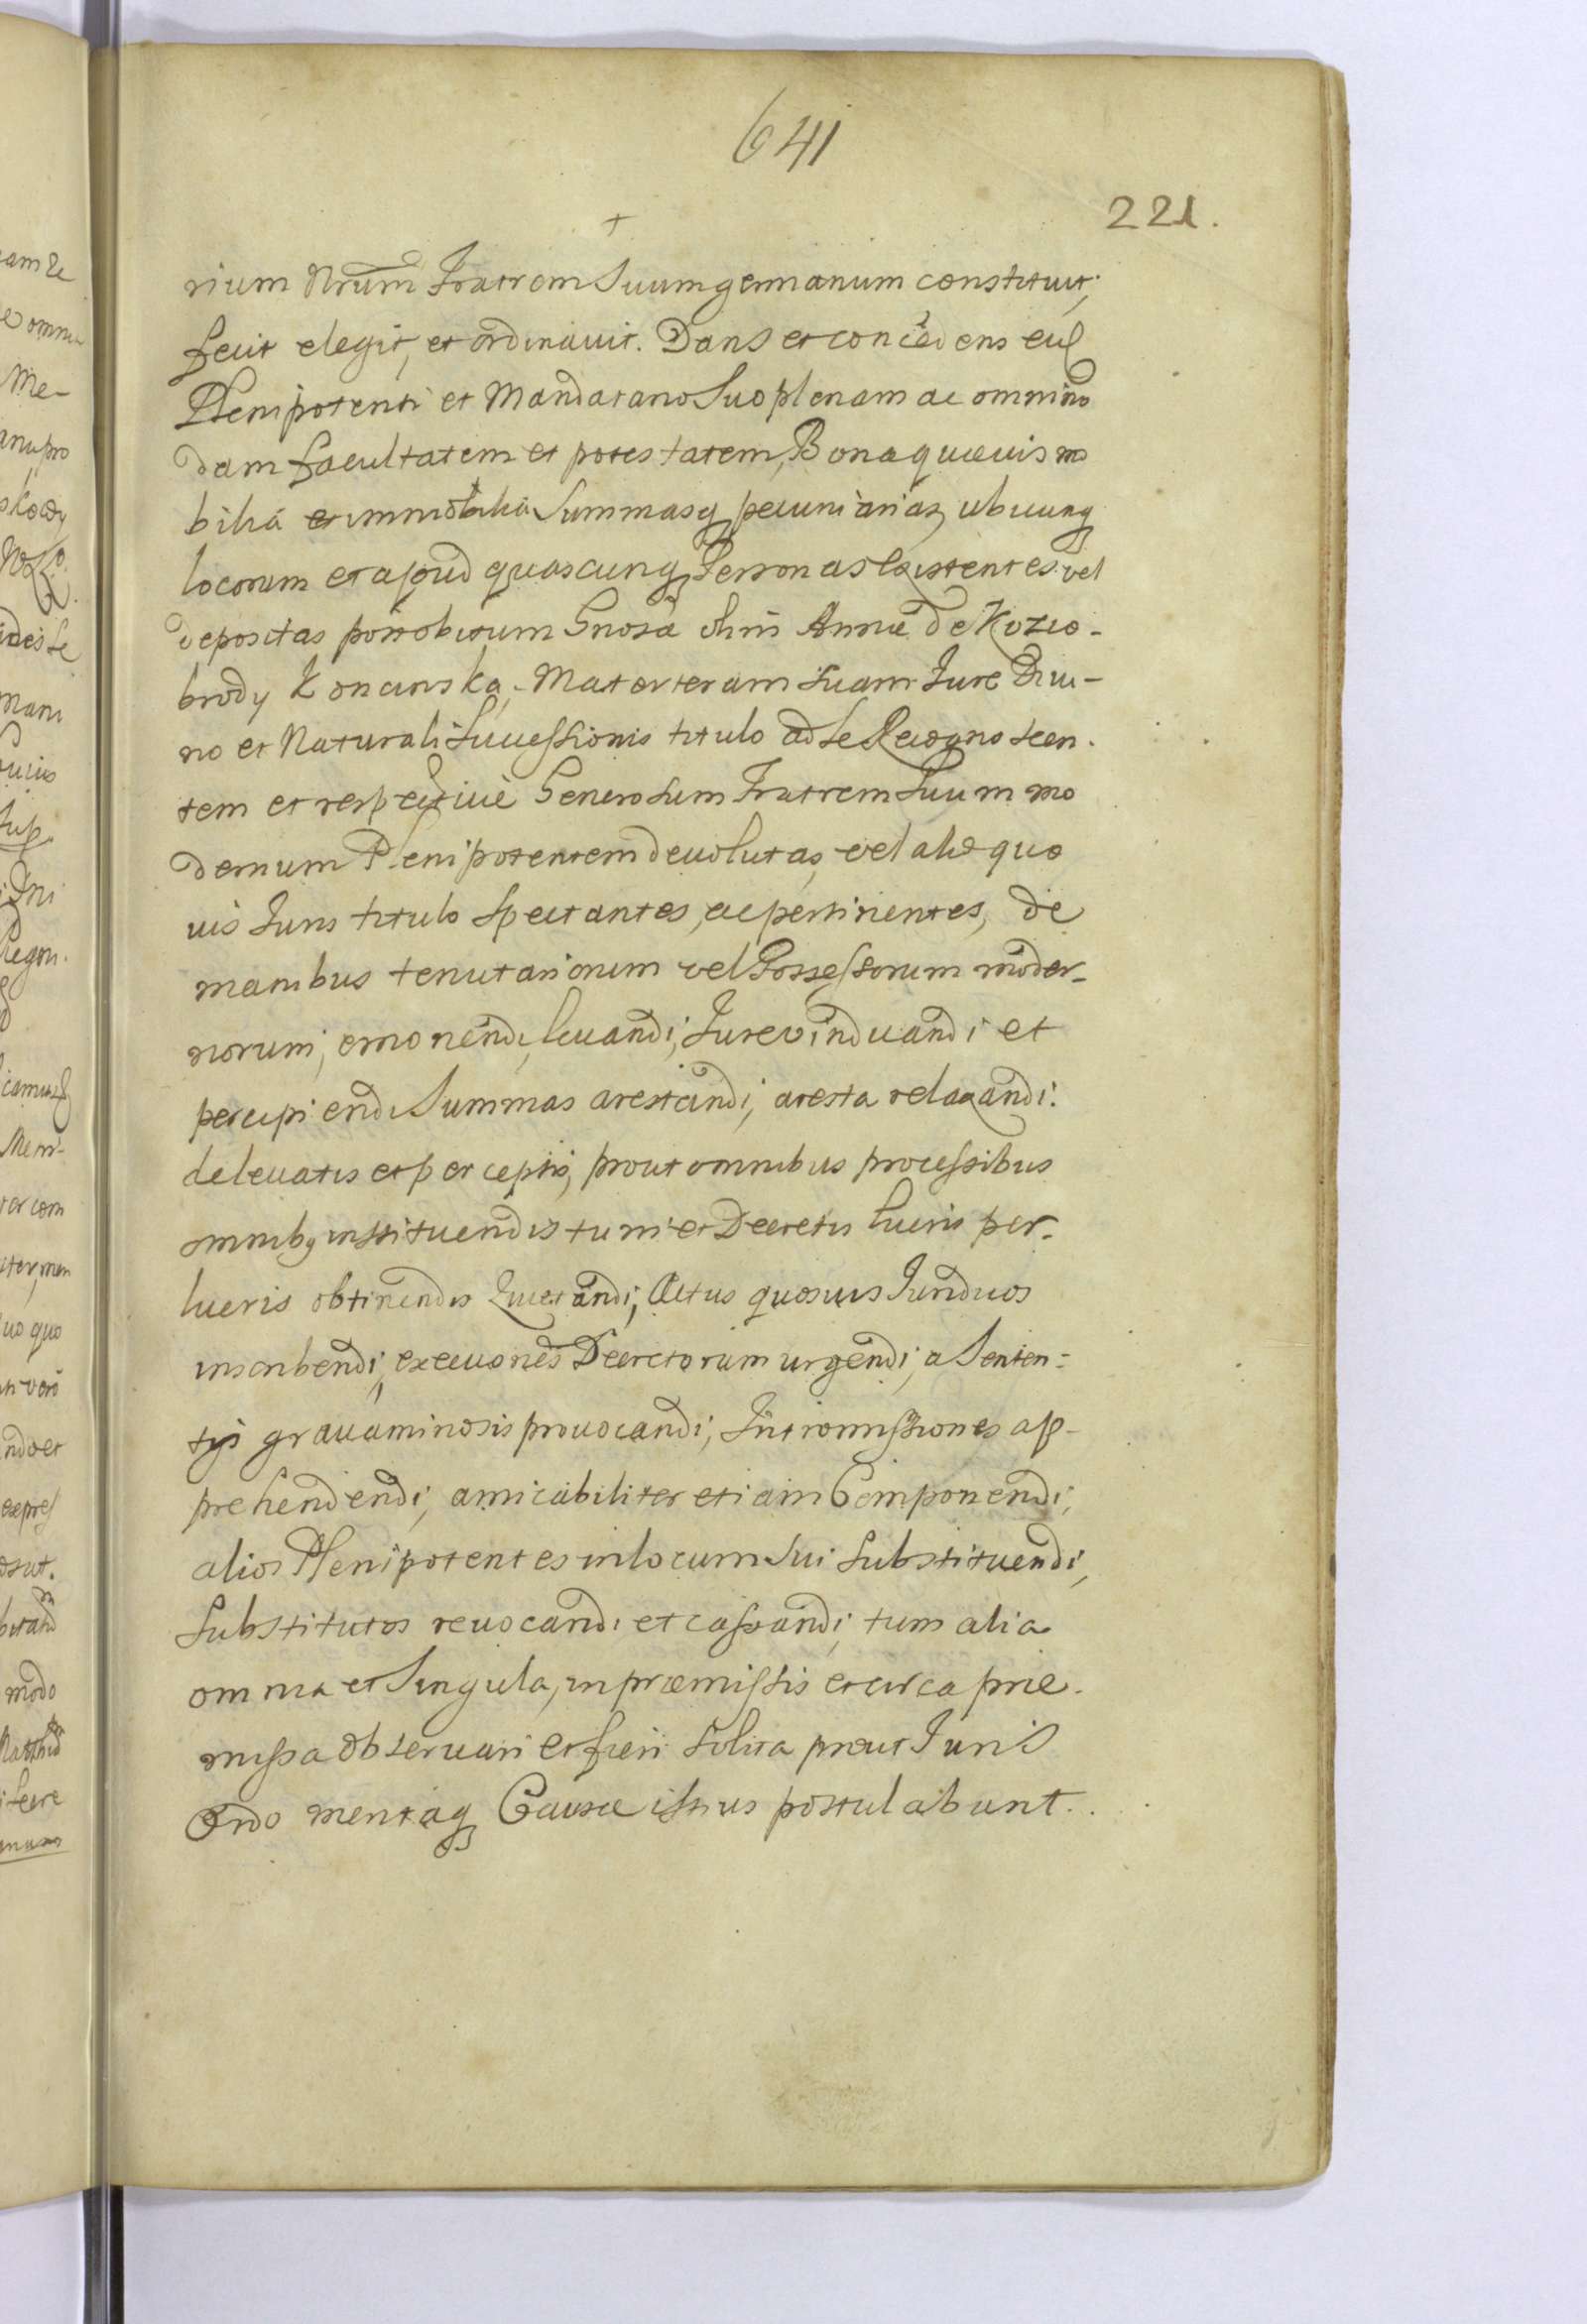 641
221.
rium Nrum Fratrem Suum germanum constituit,
fecit elegit, et ordinauit. Dans et concedens
Plenipotenti et Mandatario Suo plenam ac omnimo
dam facultatem et potestatem, Bona quæuis mo
bilia et immobilia Summasq pecuniarias, ubicunq
locorum et apud quascunq Personas existentes vel
depositas post obitum Gnosæ olim Annæ de Kozie-
brody Materteram suam Jure Diui-
no et Naturali Successionis titulo ad Se Recognoscen.
tem et respectiuè Generosum Fratrem Suum mo
dernum Plenipotentem deuolutas, vel alio quo
uis Juris titulo spectantes, ac pertinentes, de
manibus tenutariorum vel Possessorum moder-
norum, emonendi, leuandi, Jure vindicandi et
percipiendi Summas arestandi, aresta relaxandi.
de leuatis et perceptis, prout omnibus processibus
omnibq instituendis tum et Decretis lucris per-
lucris obtinendis Quietandi, Actus quosuis Juridicos
inscribendi, executiones Decretorum urgendi, a Senten-
tijs grauaminosis prouocandi, Intromissiones ap-
prehendendi, amicabiliter etiam Componendi,
alios Plenipotentes in locum Sui Substituendi,
Substitutos reuocandi et cassandi, tum alia
omnia et Singula, in præmissis et circa præ-
missa obseruari et fieri Solita prout Juris
Ordo meritaq Causæ istius postulabunt.